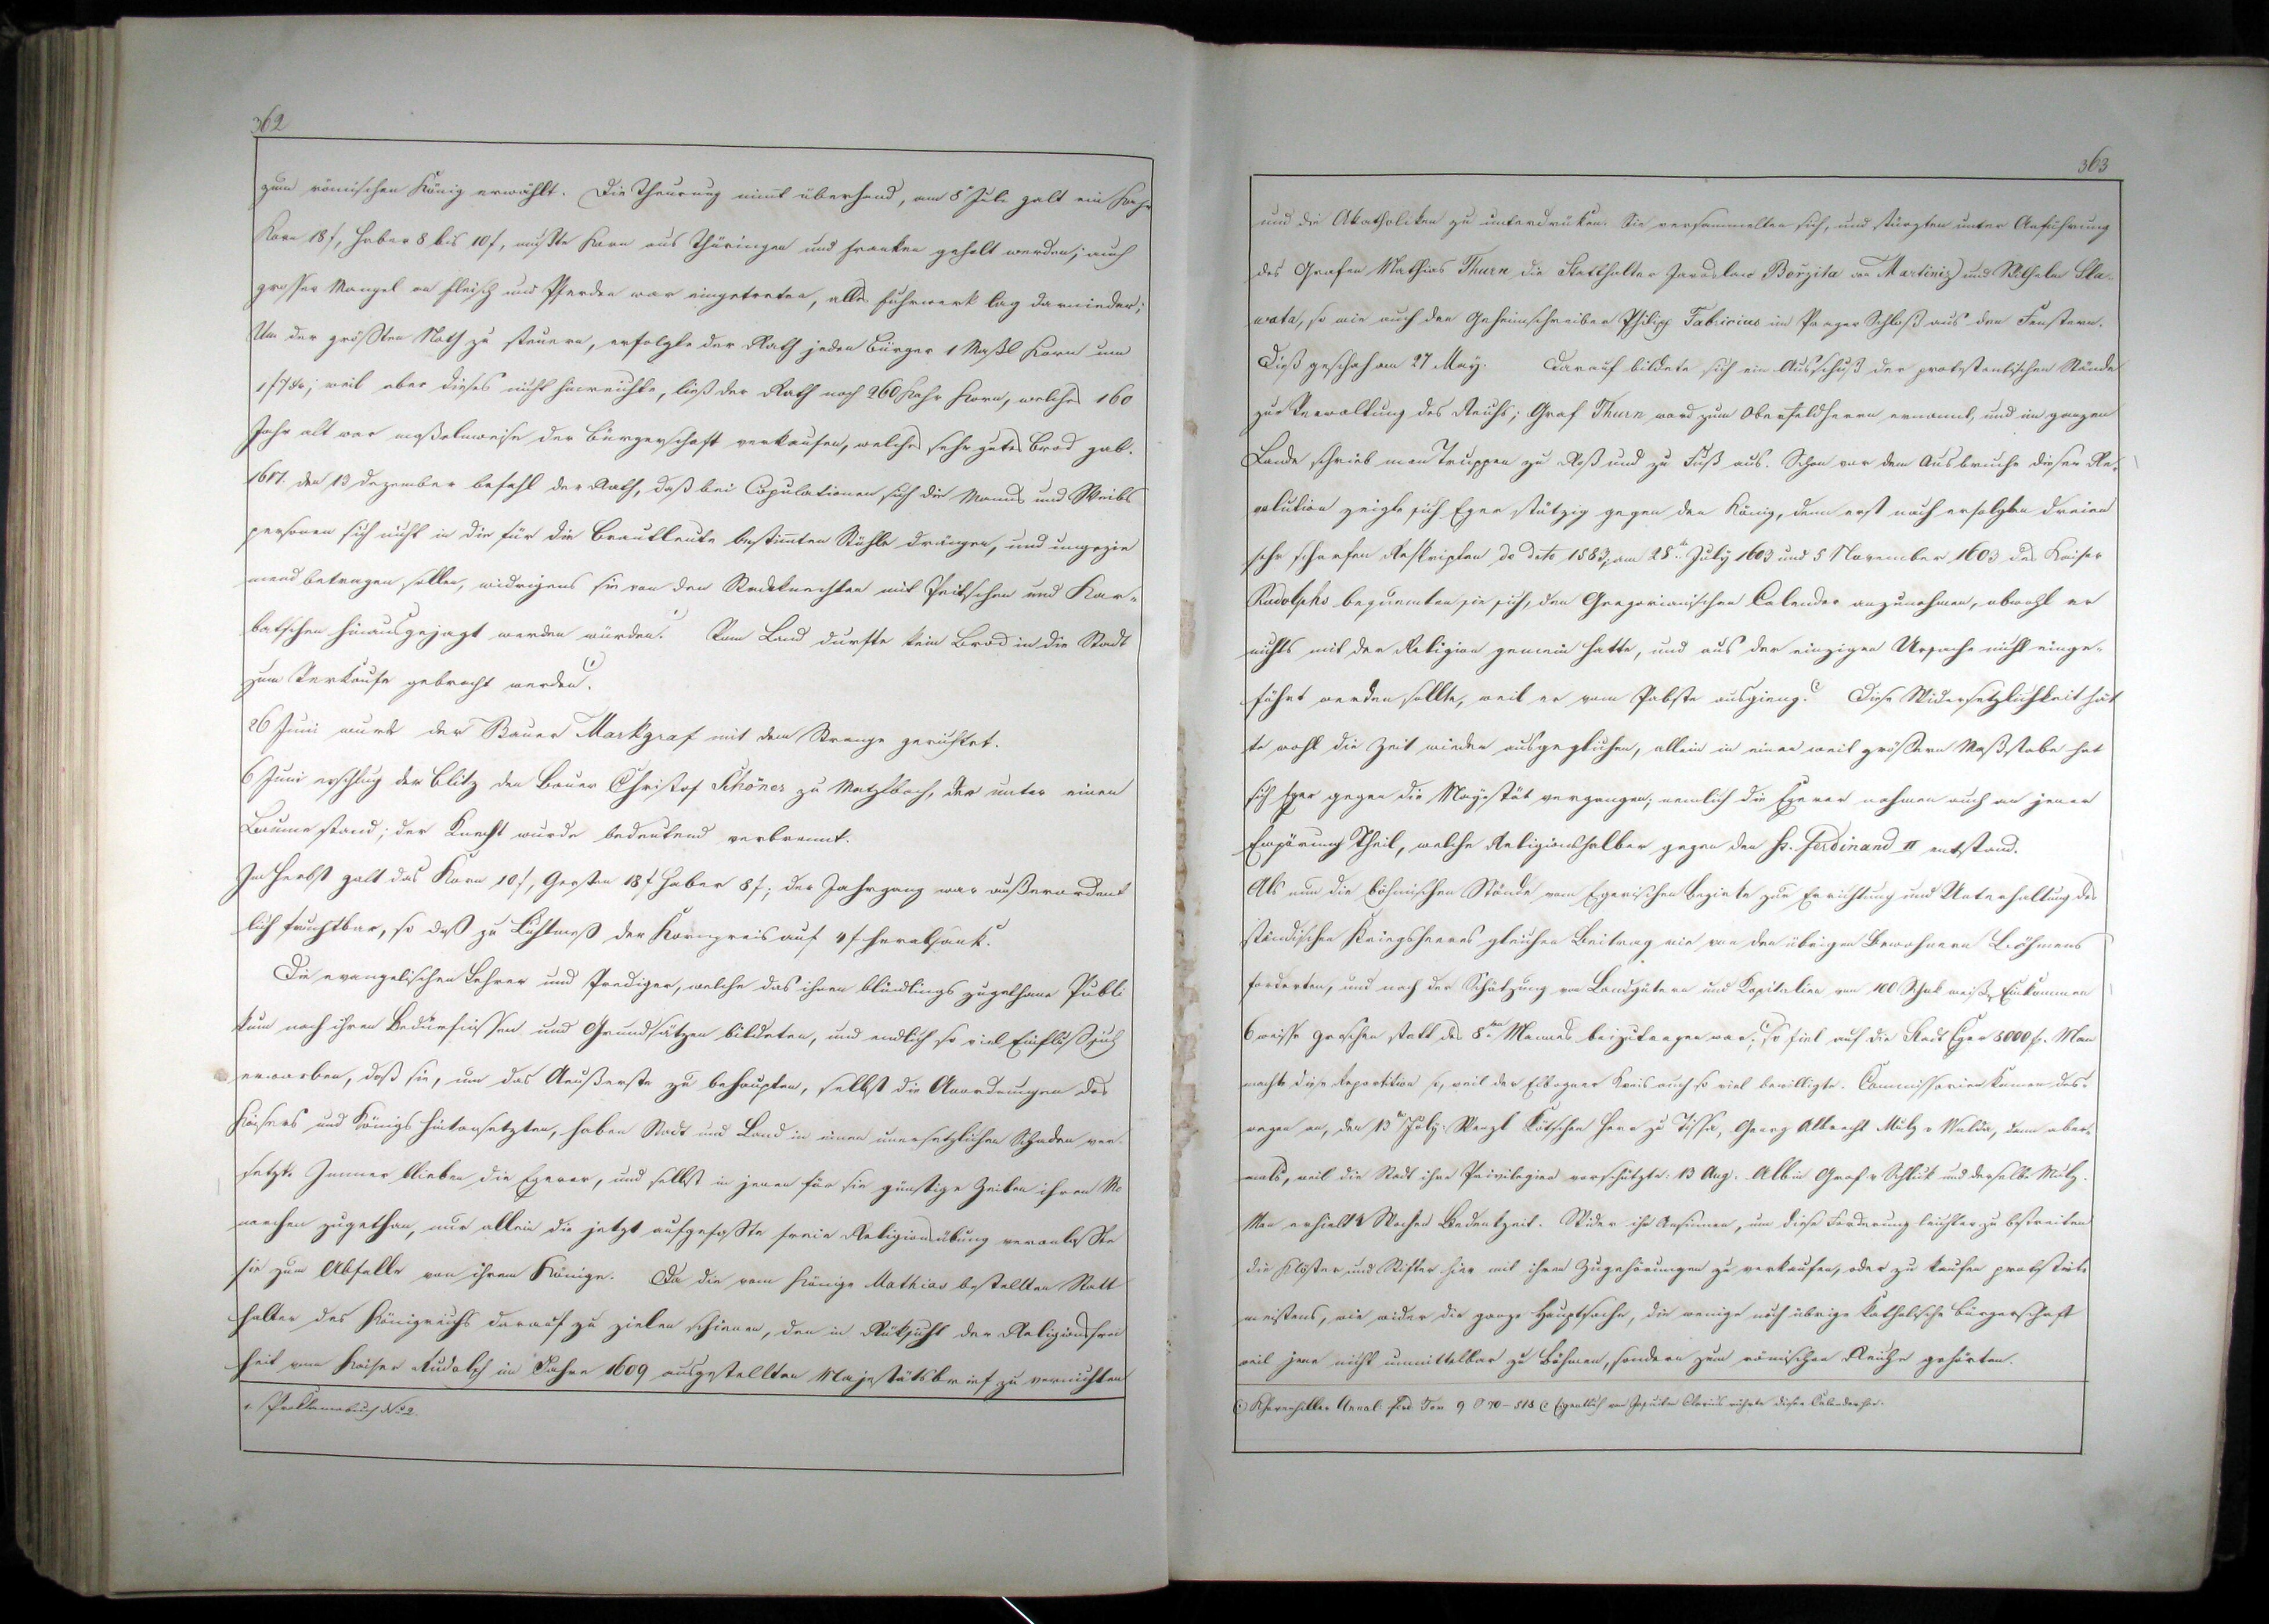 362
zum römischen König erwählt. Die Theurung nimt überhand, am 8 Jule galt ein Kahr
Korn 18 f, Haber 8 bis 10 f, mußte Korn aus Thüringen und Franken geholt werden; auch
großer Mangel an Fleisch und Pferden war eingetreten, alles Fuhrwerk lag darnieder;
Um der größten Noth zu steuern, erfolgte der Rath jeden Bürger 1 Maßl Korn um
1 f 7 Kr; weil aber dieses nicht hinreichte, ließ der Rath noch 260 Kahr Korn, welches 160
Jahr alt war maßelweise der Bürgerschaft verkaufen, welches sehr gutes Brod gab.
1617. den 13 Dezember befahl der Rath, daß bei Copulationen sich die Manns und Weibs
personen sich nicht in die für die Brautleute bestimten Stühle drängen, und ungezie
mend betragen sollen, widrigens sie von den Stadtknechten mit Peitschen und Kar-
batschen hinausgejagt werden würden. Vom Land durfte kein Brod in die Stadt
zum Verkaufe gebracht werden.
26 Juni wurde der Bauer Markgraf mit dem Strange gerichtet.
6 Juni erschlug der Blitz den Bauer Christof Schöner zu Matzlbach, der unter einen
Baume stand; der Knecht wurde bedeutend verbrennt.
Im Herbst galt das Korn 10 f, Gersten 18 f Haber 8 f; der Jahrgang war außerordent
lich fruchtbar, so daß zu Lichtmeß der Kornpreis auf 4 f herabsank.
Die evangelischen Lehrer und Prediger, welche das ihnen blindlings zugethane Publi
kum nach ihren Bedürfnissen und Grundsätzen bildeten, und endlich so viel Einfluß sich
erwarben, daß sie, um das Aeußerste zu behaupten, selbst die Anordnungen des
Kaisers und Königs hintansetzten, haben Stadt und Land in einen unersetzlichen Schaden ver-
setzt. Immer blieben die Egerer, und selbst in jenen für sie günstige Zeiten ihren Mo
narchen zugethan, nur allein die jetzt aufgefaßte freie Religionsübung veranlaßte
sie zum Abfalle von ihrem Könige. Da die vom Könige Mathias bestellten Statt
halter des Königreichs darauf zu zielen schienen, den in Rüksicht der Religionsfrei
heit vom Kaiser Rudolph im Jahre 1609 ausgestellten Majestätsbrief zu vernichten
1. Proklamabuch No 2.
363
und die Akatholiken zu unterdrüken. Sie versammelten sich, und stürzten unter Anführung
des Grafen Mathias Thurn die Statthalter Jaroslaw Borzita von Martiniz und Wilhelm Sla-
wata, so wie auch den Geheimschreiber Philipp Fabricius im Prager Schloß aus den Fenstern.
Dieß geschah am 27 May. Darauf bildete sich ein Ausschuß der protestantischen Stände
zur Verwaltung des Reichs; Graf Thurn ward zum Oberfeldherrn ernannt, und im ganzen
Lande schrieb man Truppen zu Roß und zu Fuß aus. Schon vor dem Ausbruche dieser Re-
volution zeigte sich Eger stützig gegen den König, denn erst nach erfolgten dreien
sehr scharfen Reskripten de dato 1583, am 28 July 1603 und 5 November 1603 des Kaiser
Rudolphs bequemten sie sich, den Gregorianischen Calender anzunehmen, obwohl er
nichts mit der Religion gemein hatte, und aus der einzigen Ursache nicht einge-
führt werden sollte, weil er vom Pabste ausgieng. Diese Widersetzlichkeit hät
te wohl die Zeit wieder ausgeglichen, allein in einen weit größern Maßstabe hat
sich Eger gegen die Majestät vergangen; nemlich die Egerer nahmen auch an jener
Empörung Theil, welche Religionshalber gegen den K. Ferdinand II entstand.
Als nun die böhmischen Stände vom Egerischen Bezirke zur Errichtung und Unterhaltung des
ständischen Kriegsheeres gleichen Beitrag wie von den übrigen Bewohnern Böhmens
forderten, und nach der Schätzung von Landgütern und Kapitalien von 100 Schok weiß Einkommen
6 weiße Groschen statt des 8ten Mannes beizutragen war, so fiel auf die Stadt Eger 8000 f. Man
machte diese Repartition so, weil der Elbogner Kreis auch so viel bewilligte. Commissarien kamen des-
wegen an, den 13 July: Wenzl Kötschen Herr zu Tissa, Georg Albrecht Mulz v Walda, dann aber-
mals, weil die Stadt ihre Privilegien vorschützte: 13 Aug. Albin Graf v Schlick und derselbe Mulz.
Man erhielt 4 Wochen Bedenkzeit. Wider ihr Ansinnen, um diese Forderung leichter zu bestreiten
die Klöster und Stifter hier mit ihren Zugehörungen zu verkaufen, oder zu kaufen protestirte
meistens, wie wider die ganze Hauptsache, die wenige noch übrige katholische Bürgerschaft
weil jene nicht unmittelbar zu Böhmen, sondern zum römischen Reiche gehörten.
Khevenhiller Annal. Ferd. Tom 9 S 70-518 Eigentlich vom Jesuiten Clavius rührte dieser Calender her.